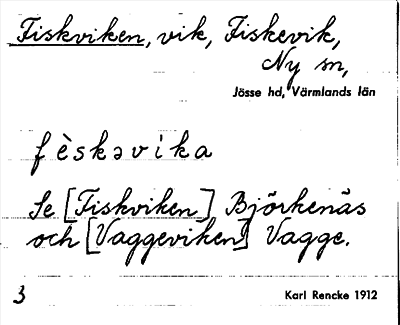 Fiskviken, vik, Fiskevik,
Ny sn,
Jösse hd, Värmlands län
fèskəvìka
Se [Fiskviken] Björkenäs
och [Vaggeviken] Vagge.
3
Karl Rencke 1912